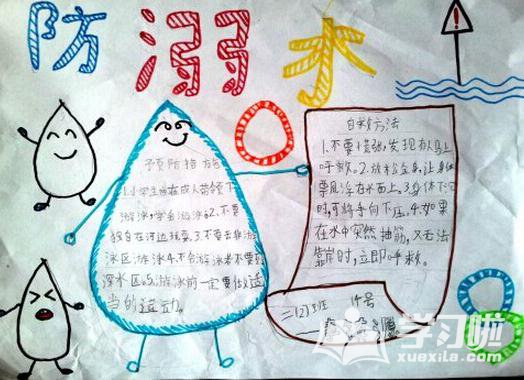 防溺水
预防措施
1.小学生应在成人带领下
游泳,学会游泳2.不要
独自在河边玩耍.3.不要去非游
泳区游泳4.不会游泳者不要到
深水区.5.游泳前一定要做适
当的运动.
自救方法
1.不要慌张,发现有人马上
呼救.2.放松全身,让身体
飘浮在水面上.3.身体下沉
时,可将手向下压.4.如果
在水中突然抽筋,又无法
靠岸时,立即呼救.
二(2)班
学习啦
xuexila.com